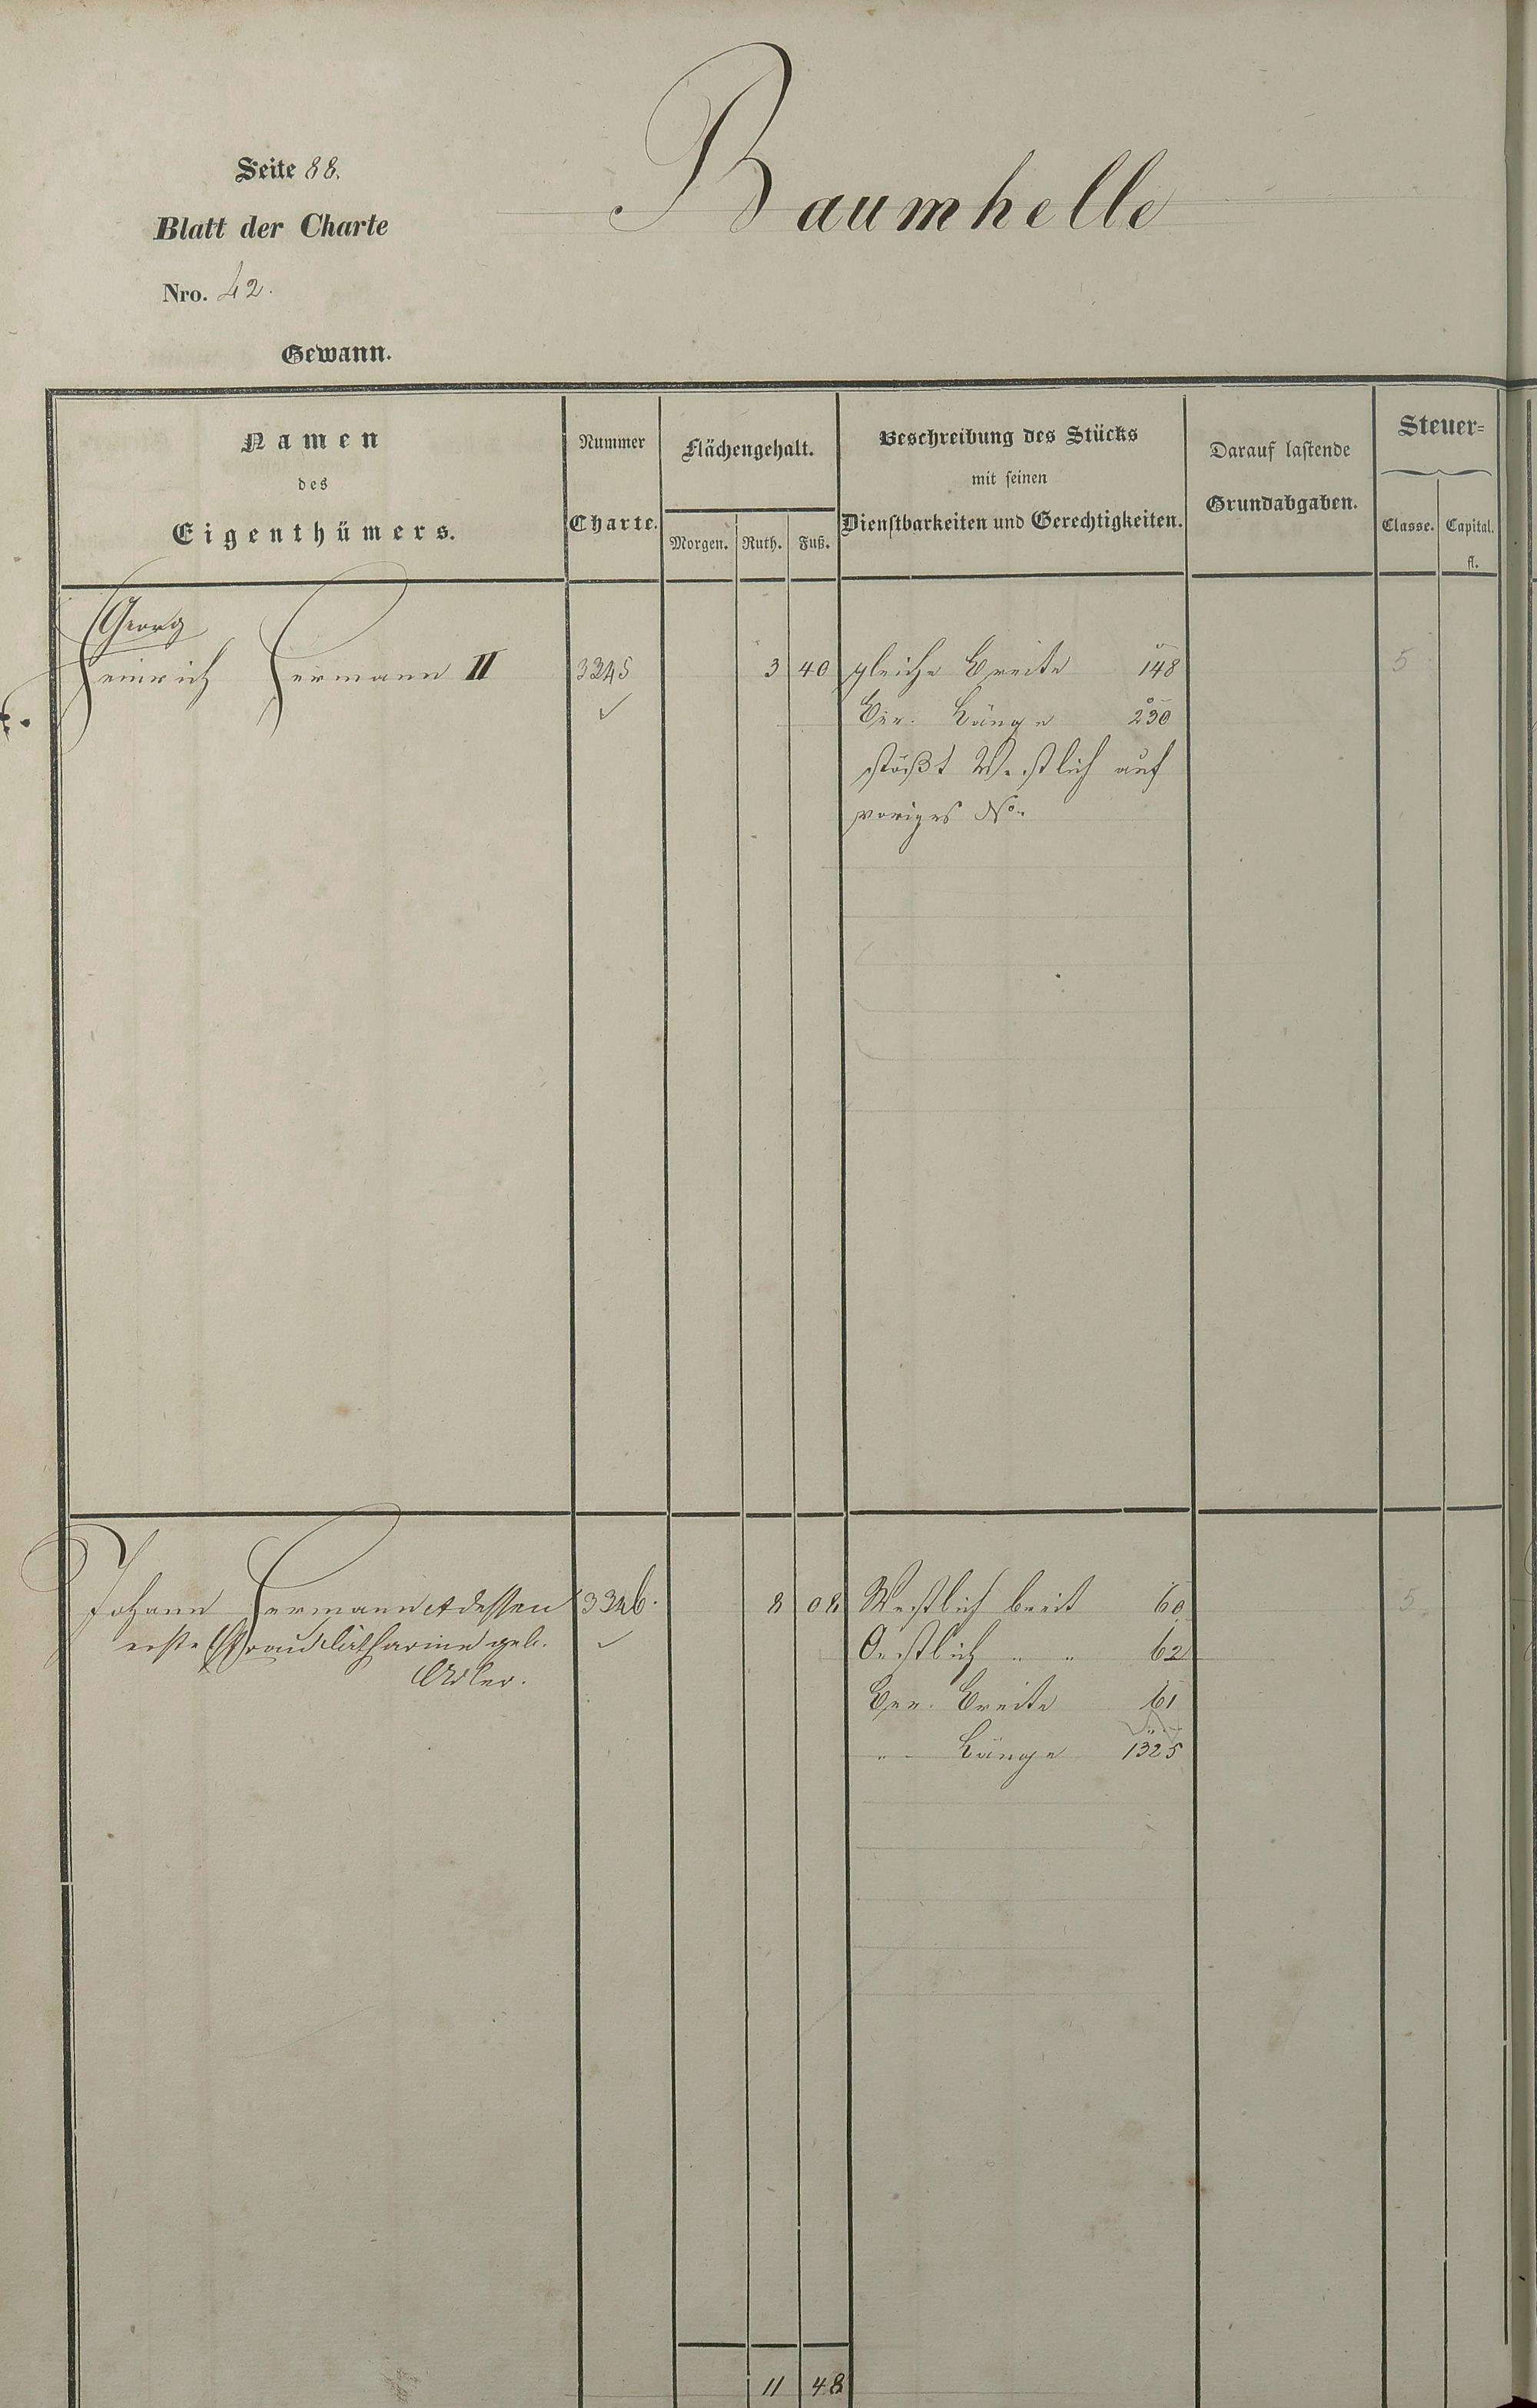 Seite 88.
Baumhelle
Blatt der Charte
Nro. 42.
Gewann.
Namen
des
Eigenthümers.
Nummer
Charte.
Flächengehalt.
Morgen. Ruth. Fuß.
Beschreibung des Stücks
mit seinen
Dienstbarkeiten und Gerechtigkeiten.
Darauf lastende
Grundabgaben.
Steuer=
Classe. Capital.
fl.
Georg
Heinrich Hermann II 3345 3 40 gleiche Breite 148 5
Ver. Länge 230
stößt Westlich auf
voriges No.
Johann Hermann et dessen 3346. 8 08 Westlich breit 60 5
erste Frau Catharine geb. Oestlich " " 62
Adler. Ver. Breite 61
" Länge 1325
11 48